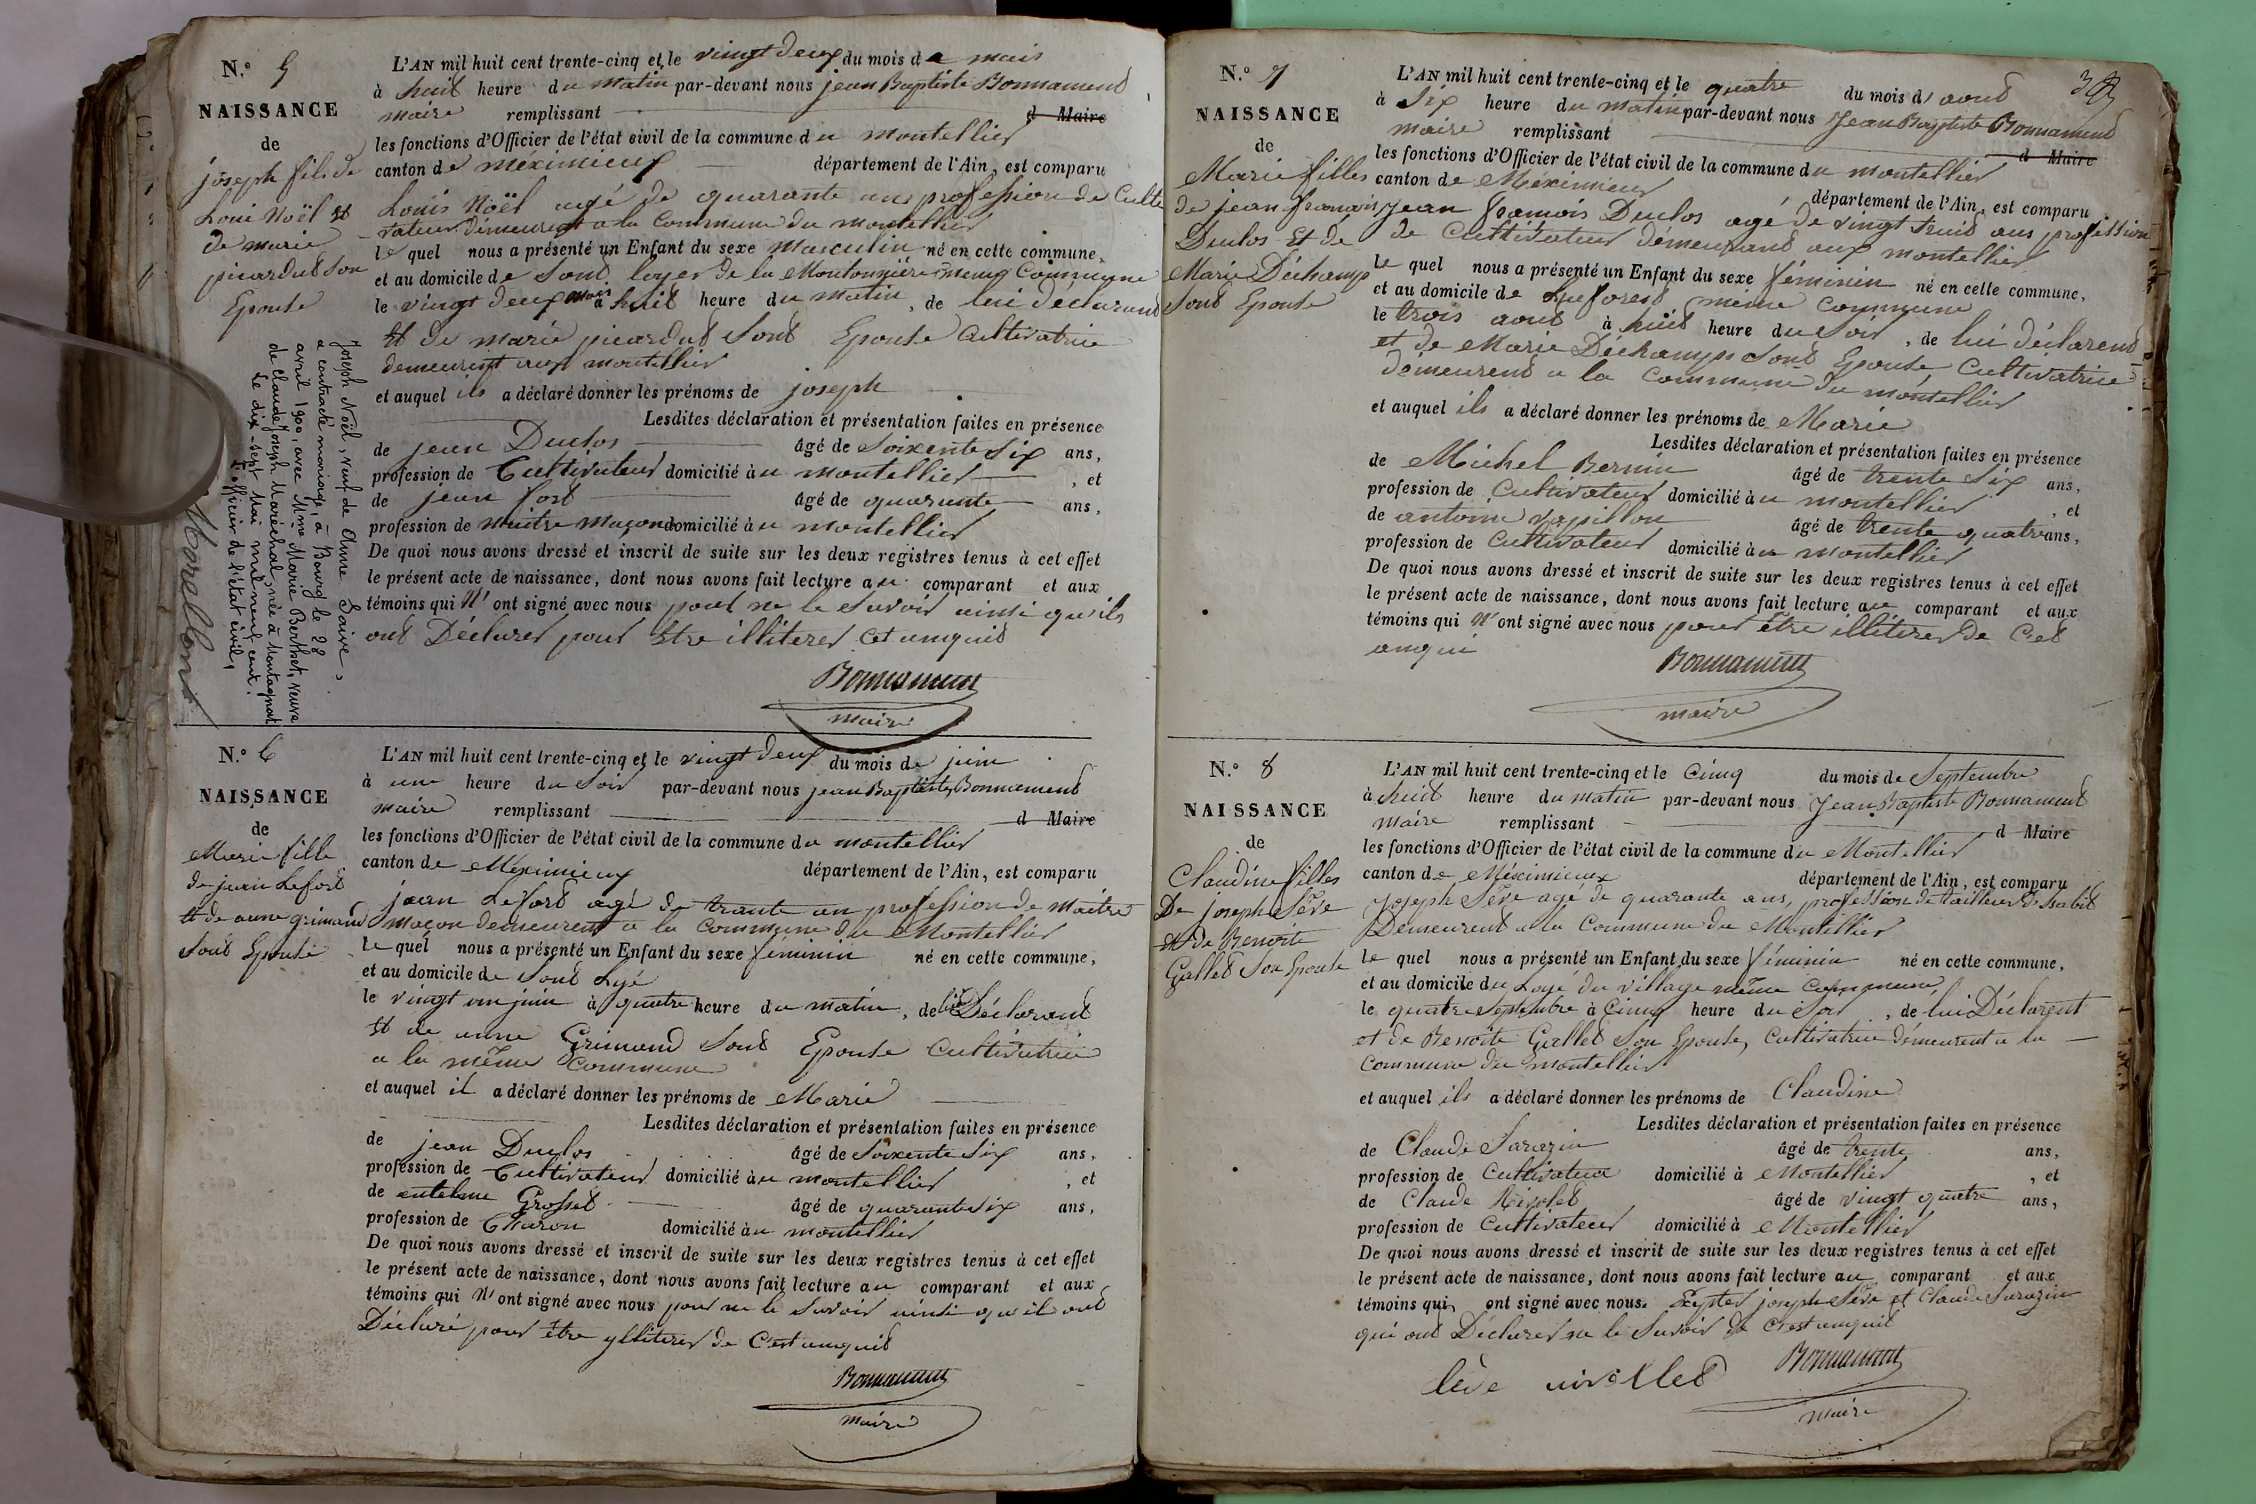 N.° 5
NAISSANCE
de
joseph fils de
Loui Noël et
de marie
picardud Son
Epouse
Joseph Noël, veuf de Anne Laive,
a contracté mariage, à Bourg le 28
avril 1900, avec Mme Marie Berthet, veuve
de Claude Joseph Maréchal, née à Montagnat
Le dix-sept Mai mil neuf cent.
L'officier de l'état civil,
Morellon
L'AN mil huit cent trente-cinq et le vingt deux du mois de mais
à huit heure du matin par-devant nous jean Baptiste Bonnament
maire remplissant d Maire
les fonctions d'Officier de l'état civil de la commune du montellier
canton de méximieux département de l'Ain, est comparu
Louis Noël agé de quarante ans profession de Culti
vateur demeurent a la Commune du montellier
le quel nous a présenté un Enfant du sexe masculin né en cette commune,
et au domicile de Sont loyer de la Moutonnière meme Commune
le vingt deux mais à huit heure du matin, de lui déclarand
Et de marie picardud Sont Epouse Cultivatrice
demeurent aux montellier
et auquel ils a déclaré donner les prénoms de joseph
Lesdites déclaration et présentation faites en présence
de jean Duclos âgé de Soixente Six ans,
profession de Cultivateur domicilié àu montellier, et
de jean fort âgé de quarante ans,
profession de maitre maçon domicilié àu montellier
De quoi nous avons dressé et inscrit de suite sur les deux registres tenus à cet effet
le présent acte de naissance, dont nous avons fait lecture au comparant et aux
témoins qui N' ont signé avec nous pour ne le Savoir ainsi qu'ils
ont Déclarer pour Etre illiterer Cet anquit
Bonnament
maire
N.° 6
NAISSANCE
de
Marie fille
de jean Lefort
Et de anne grimand
Sont Epouse
L'AN mil huit cent trente-cinq et le vingt deux du mois de juin
à une heure du Soir par-devant nous jean Baptiste Bonnament
maire remplissant d Maire
les fonctions d'Officier de l'état civil de la commune du montellier
canton de Méximieux département de l'Ain, est comparu
jean Lefort agé de trante un profession de maitre
maçon demeurent a la Commune du Montellier
le quel nous a présenté un Enfant du sexe féminin né en cette commune,
et au domicile de Sont Lojé
le vingt un juin à quatre heure du matin, de lui Déclarant
Et de anne Grimand Sont Epouse Cultivatrice
a la même Commune
et auquel il a déclaré donner les prénoms de Marie
Lesdites déclaration et présentation faites en présence
de jean Duclos âgé de Soixente Six ans,
profession de Cultivateur domicilié àu montellier, et
de entelme Grosset âgé de quarante six ans,
profession de Charon domicilié àu montellier
De quoi nous avons dressé et inscrit de suite sur les deux registres tenus à cet effet
le présent acte de naissance, dont nous avons fait lecture au comparant et aux
témoins qui N' ont signé avec nous pour ne le Savoir ainsi qu'il ont
Déclaré pour être ylliterer de C'est anquit
Bonnament
maire
N.° 7
NAISSANCE
de
Marie filles
de jean francois
Duclos Et de
Marie Déchamp
Sont Epouse
L'AN mil huit cent trente-cinq et le quatre du mois d'aout
à Six heure du matin par-devant nous Jean Baptiste Bonnament
maire remplissant d Maire
les fonctions d'Officier de l'état civil de la commune du montellier
canton de Méximieux département de l'Ain, est comparu
Jean francois Duclos agé de vingt huit ans profession
de Cultivateur démeurant aux montellier
le quel nous a présenté un Enfant du sexe féminin né en cette commune,
et au domicile de même Commune
le trois aout à huit heure du Soir, de lui déclarend
et de Marie Déchamps Sont Epouse Cultivatrice
demeurend a la Commune du montellier
et auquel ils a déclaré donner les prénoms de Marie
Lesdites déclaration et présentation faites en présence
de Michel Bernin âgé de trente Six ans,
profession de Cultivateur domicilié àu montellier, et
de antoine vapillon âgé de trente quatre ans,
profession de Cultivateur domicilié àu montellier
De quoi nous avons dressé et inscrit de suite sur les deux registres tenus à cet effet
le présent acte de naissance, dont nous avons fait lecture au comparant et aux
témoins qui N' ont signé avec nous pour être illiterer de Cet
anqui
Bonnament
maire
N.° 8
NAISSANCE
de
Claudine filles
De joseph Sève
et de Benoite
Gallet Son Epouse
L'AN mil huit cent trente-cinq et le Cinq du mois de Septembre
à huit heure du matin par-devant nous Jean Baptiste Bonnament
maire remplissant d Maire
les fonctions d'Officier de l'état civil de la commune du Montellier
canton de Méximieux département de l'Ain, est comparu
Joseph Sève agé de quarante ans, profession de tailleur d'habit
Demeurent a la Commune du Montellier
le quel nous a présenté un Enfant du sexe féminin né en cette commune,
et au domicile du Lojé du village même Commune
le quatre Septembre à Cinq heure du Soir, de lui Déclarent
et de Benoite Gallet Son Epouse, Cultivatrice démeurent a la
Commune du montellier
et auquel ils a déclaré donner les prénoms de Claudine
Lesdites déclaration et présentation faites en présence
de Claude Sarazin âgé de trente ans,
profession de Cultivateur domicilié à Montellier, et
de Claude Nivolet âgé de vingt quatre ans,
profession de Cultivateur domicilié à Montellier
De quoi nous avons dressé et inscrit de suite sur les deux registres tenus à cet effet
le présent acte de naissance, dont nous avons fait lecture au comparant et aux
témoins qui ont signé avec nous. Exepter joseph Sève et Claude Sarazin
qui ont Déclarer ne le Savoir de C'est anquit
Bonnament
maire